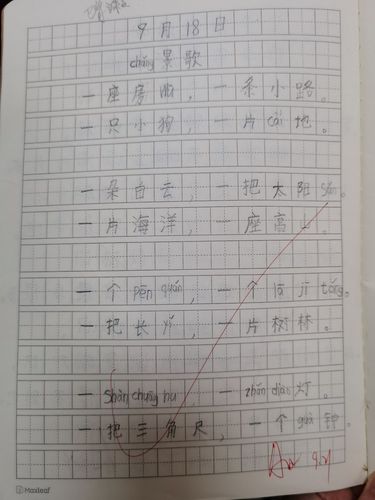 9月18日
chǎng景歌
一座房山，一条小路。
一只小狗，一片cài地。
一朵白云，一把太阳sǎn。
一片海洋，一座高山。
一个pēn quán，一个lā jī tǒng。
一把长yǐ，一片树林。
一shàn chuāng hu，一zhǎn diào灯。
一把三角尺，一个guà钟。
Maxleaf